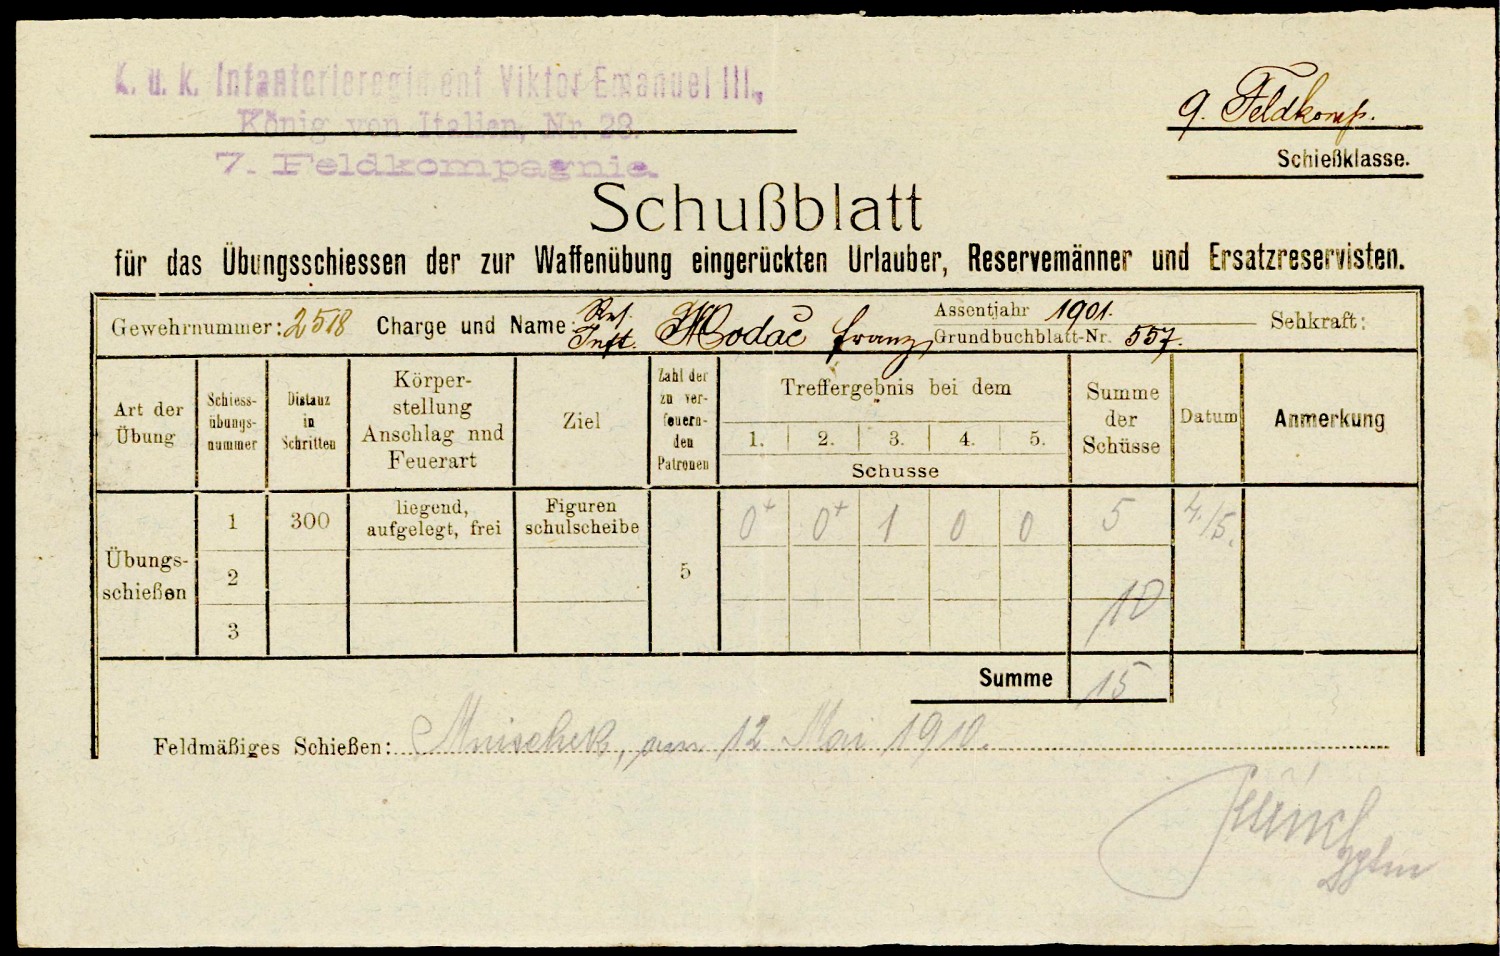 K. u. k. Infanterieregiment Viktor Emanuel III.,
König von Italien, Nr. 28.
7. Feldkompagnie.
9. Feldkomp.
Schießklasse.
Schußblatt
für das Übungsschiessen der zur Waffenübung eingerückten Urlauber, Reservemänner und Ersatzreservisten.
Gewehrnummer: 2518 Charge und Name: Res. Inft. Hodač Franz Assentjahr 1901. Grundbuchblatt-Nr. 557. Sehkraft:
Art der Übung
Schiess-übungs-nummer
Distanz in Schritten
Körper-stellung Anschlag nnd Feuerart
Ziel
Zahl der zu ver-feuern-den Patronen
Treffergebnis bei dem
1. 2. 3. 4. 5.
Schusse
Summe der Schüsse
Datum
Anmerkung
Übungs-schießen
1 300 liegend, aufgelegt, frei Figuren schulscheibe 5 0+ 0+ 1 0 0 5 4./5.
2
3 10
Summe 15
Feldmäßiges Schießen: Mnischek, am 12 Mai 1910.